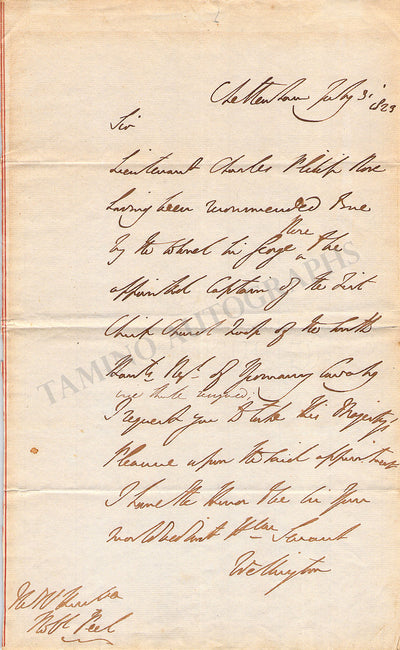 Cheltenham July 31 1823
Sir
Lieutenant Charles Philip Rose
having been recommended to me
by the Colonel Sir George Rose to be
appointed Captain of the first
Christ Church Troop of the South
Hants Regt. of Yeomanry Cavalry
I request you to take His Majesty's
Pleasure upon the said appointment
I have the Honor to be Sir Your
most obedient Humble Servant
Wellington
The Rt Honble
Robt Peel
TAMINO AUTOGRAPHS